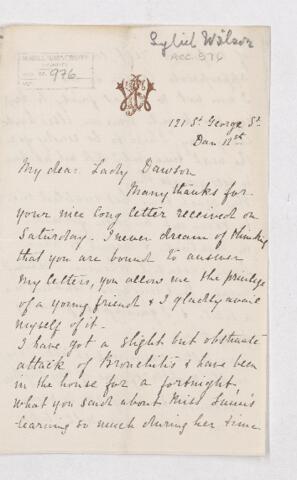 Sybil Wilson
ACC. 976
McGILL UNIVERSITY
ACC. NO. 976
REF.
121 St. George St.
Jan 12st
My dear Lady Dawson
Many thanks for
your nice long letter received on
Saturday. I never dream of thinking
that you are bound to answer
my letters, you allow me the privilege
of a young friend & I gladly avail
myself of it.
I have got a slight but obstinate
attack of Bronchitis & have been
in the house for a fortnight.
What you said about Miss
learning so much during her time